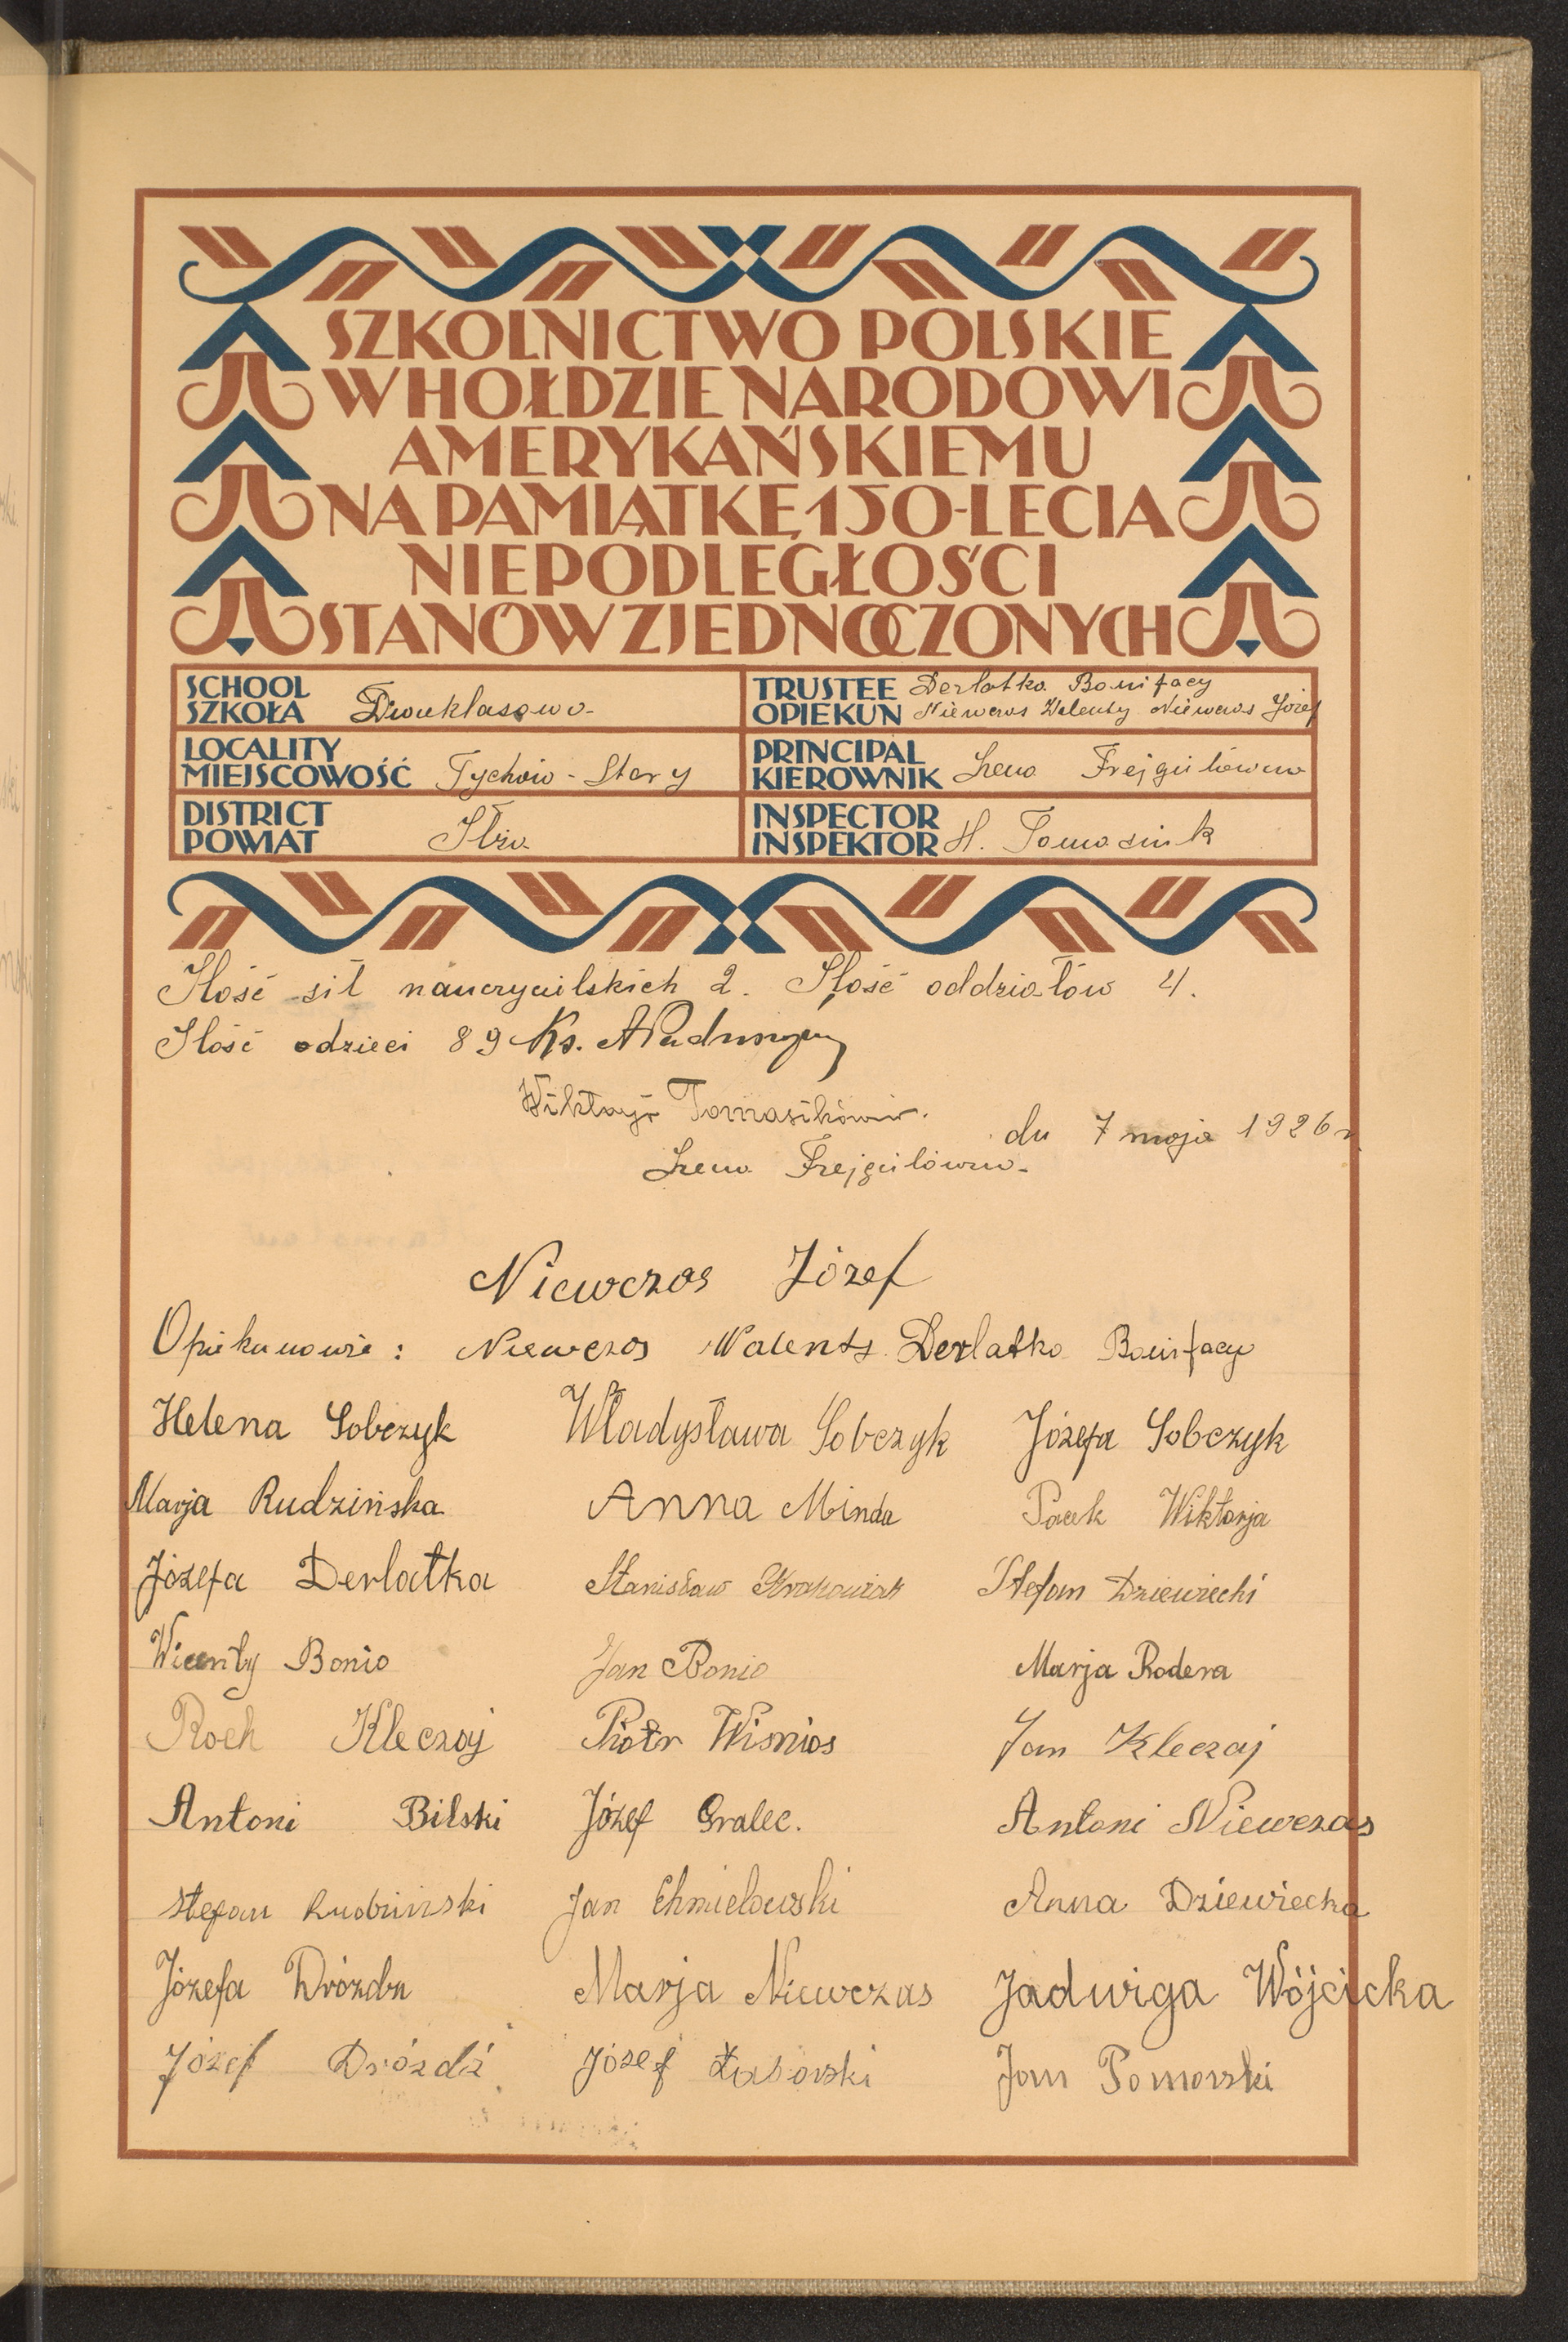 SZKOLNICTWO POLSKIE
W HOŁDZIE NARODOWI
AMERYKAŃSKIEMU
NA PAMIĄTKĘ 150-LECIA
NIEPODLEGŁOŚCI
STANÓW ZJEDNOCZONYCH
SCHOOL SZKOŁA Dwuklasowa
TRUSTEE OPIEKUN Derlatka Bonifacy Niewczas Walenty Niewczas Józef
LOCALITY MIEJSCOWOŚĆ Tychów-Stary
PRINCIPAL KIEROWNIK Irena Frejgulówna
DISTRICT POWIAT Iłża
INSPECTOR INSPEKTOR H. Tomasink
Ilość sił nauczycielskich 2. Ilość oddziałów 4.
Ilość dzieci 89 Ks.
Wiktorja Tomasikówna.
dn 7 maja 1926 r
Irena Frejgulówna
Niewczas Józef
Opiekunowie: Niewczas Walenty Derlatka Bonifacy
Helena Sobczyk Władysława Sobczyk Józefa Sobczyk
Marja Rudzińska Anna Minda Pacek Wiktorja
Józefa Derlatka Stanisław Krakowiak Stefan Dziewiecki
Wicenty Bonio Jan Bonio Marja Rodera
Roch Kleczaj Piotr Wisnios Jan Kleczaj
Antoni Bilski Józef Gralec. Antoni Niewczas
Stefan Rudzinski Jan Chmielowski Anna Dziewiecka
Józefa Drózda Marja Niewczas Jadwiga Wójcicka
Józef Dróżdż Józef Łasovski Jan Pomorski